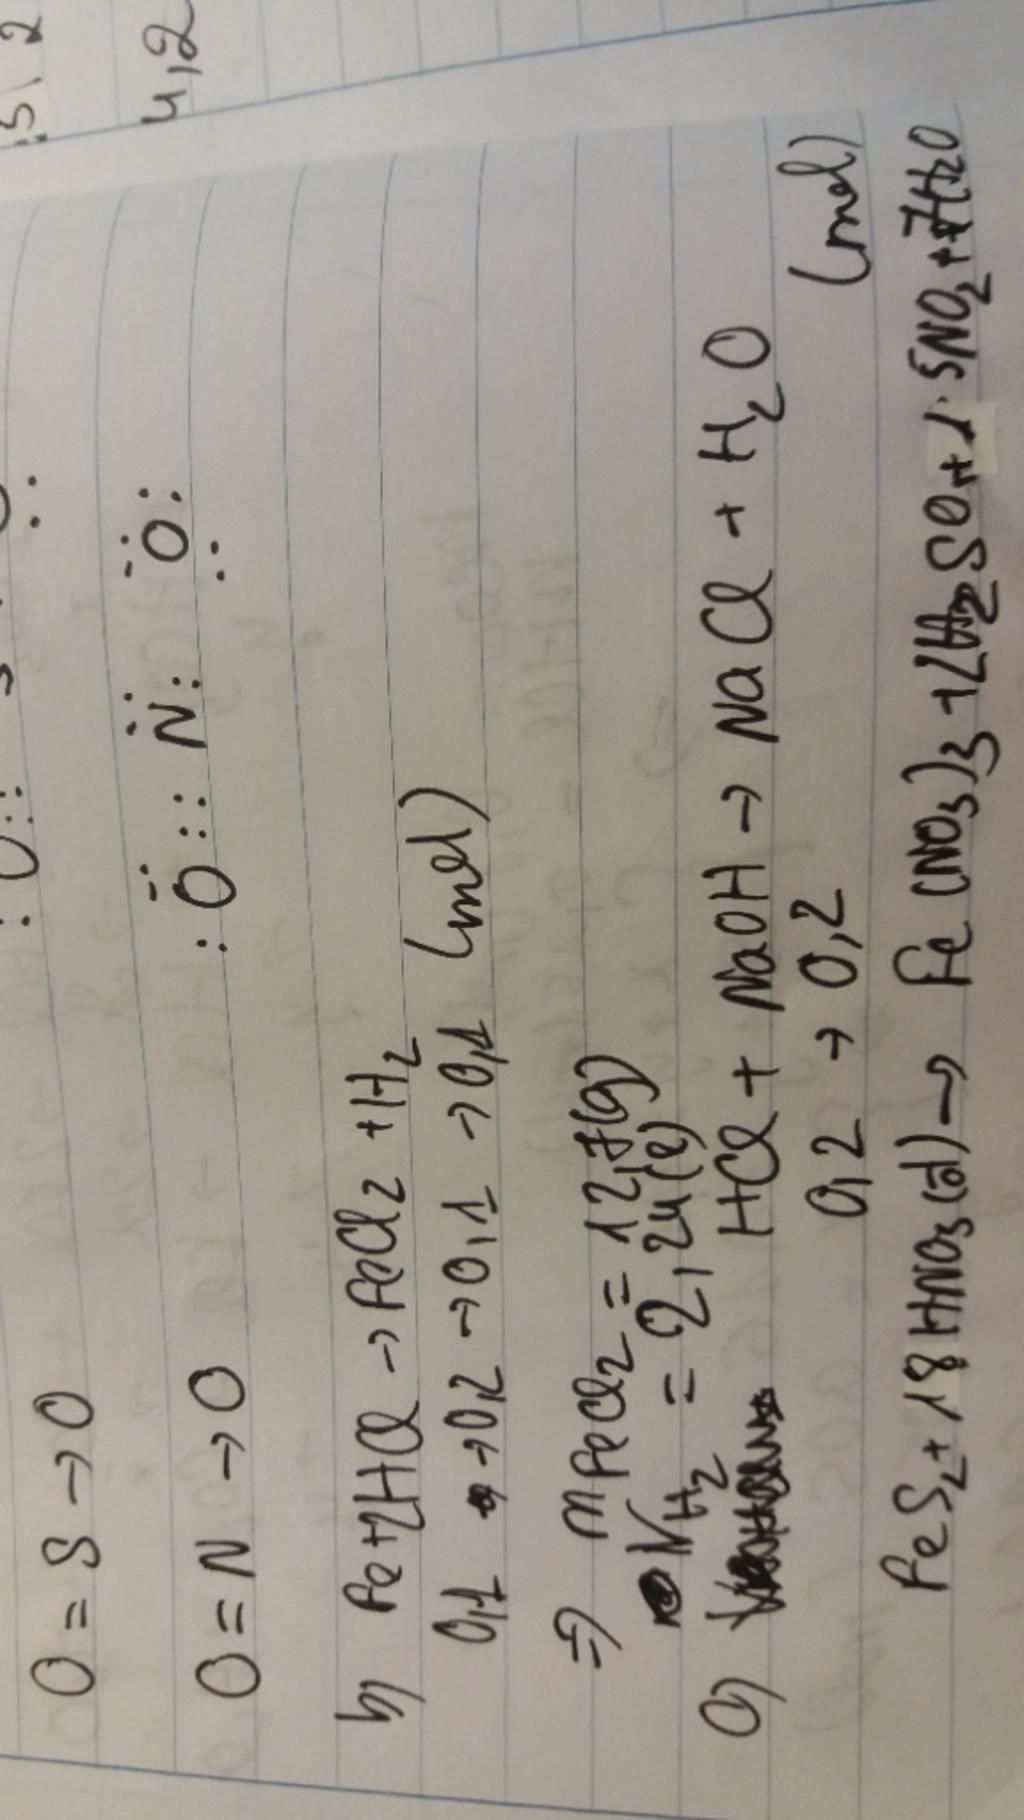 :S\ 2
4,2
O = S → O
O = N → O
:Ö::N̈:Ö:
b) Fe+2HCl → FeCl2 + H2
0,1 → 0,2 → 0,1 → 0,1 (mol)
⇒ mFeCl2 = 12,7(g)
VH2 = 2,24(l)
c) HCl + NaOH → NaCl + H2O
0,2 → 0,2 (mol)
FeS2 + 18HNO3(đ) → Fe(NO3)3 + 2H2SO4 + 15NO2 + 7H2O